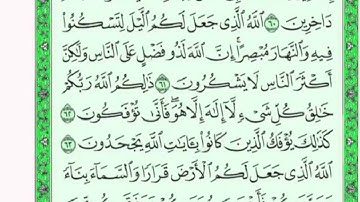 دَاخِرِينَ ٦٠ ٱللَّهُ ٱلَّذِى جَعَلَ لَكُمُ ٱلَّيۡلَ لِتَسۡكُنُواْ
فِيهِ وَٱلنَّهَارَ مُبۡصِرًاۚ إِنَّ ٱللَّهَ لَذُو فَضۡلٍ عَلَى ٱلنَّاسِ وَلَٰكِنَّ
أَكۡثَرَ ٱلنَّاسِ لَا يَشۡكُرُونَ ٦١ ذَٰلِكُمُ ٱللَّهُ رَبُّكُمۡ
خَٰلِقُ كُلِّ شَىۡءٍ لَّآ إِلَٰهَ إِلَّا هُوَۖ فَأَنَّىٰ تُؤۡفَكُونَ ٦٢
كَذَٰلِكَ يُؤۡفَكُ ٱلَّذِينَ كَانُواْ بِـَٔايَٰتِ ٱللَّهِ يَجۡحَدُونَ ٦٣
ٱللَّهُ ٱلَّذِى جَعَلَ لَكُمُ ٱلۡأَرۡضَ قَرَارًا وَٱلسَّمَآءَ بِنَآءً